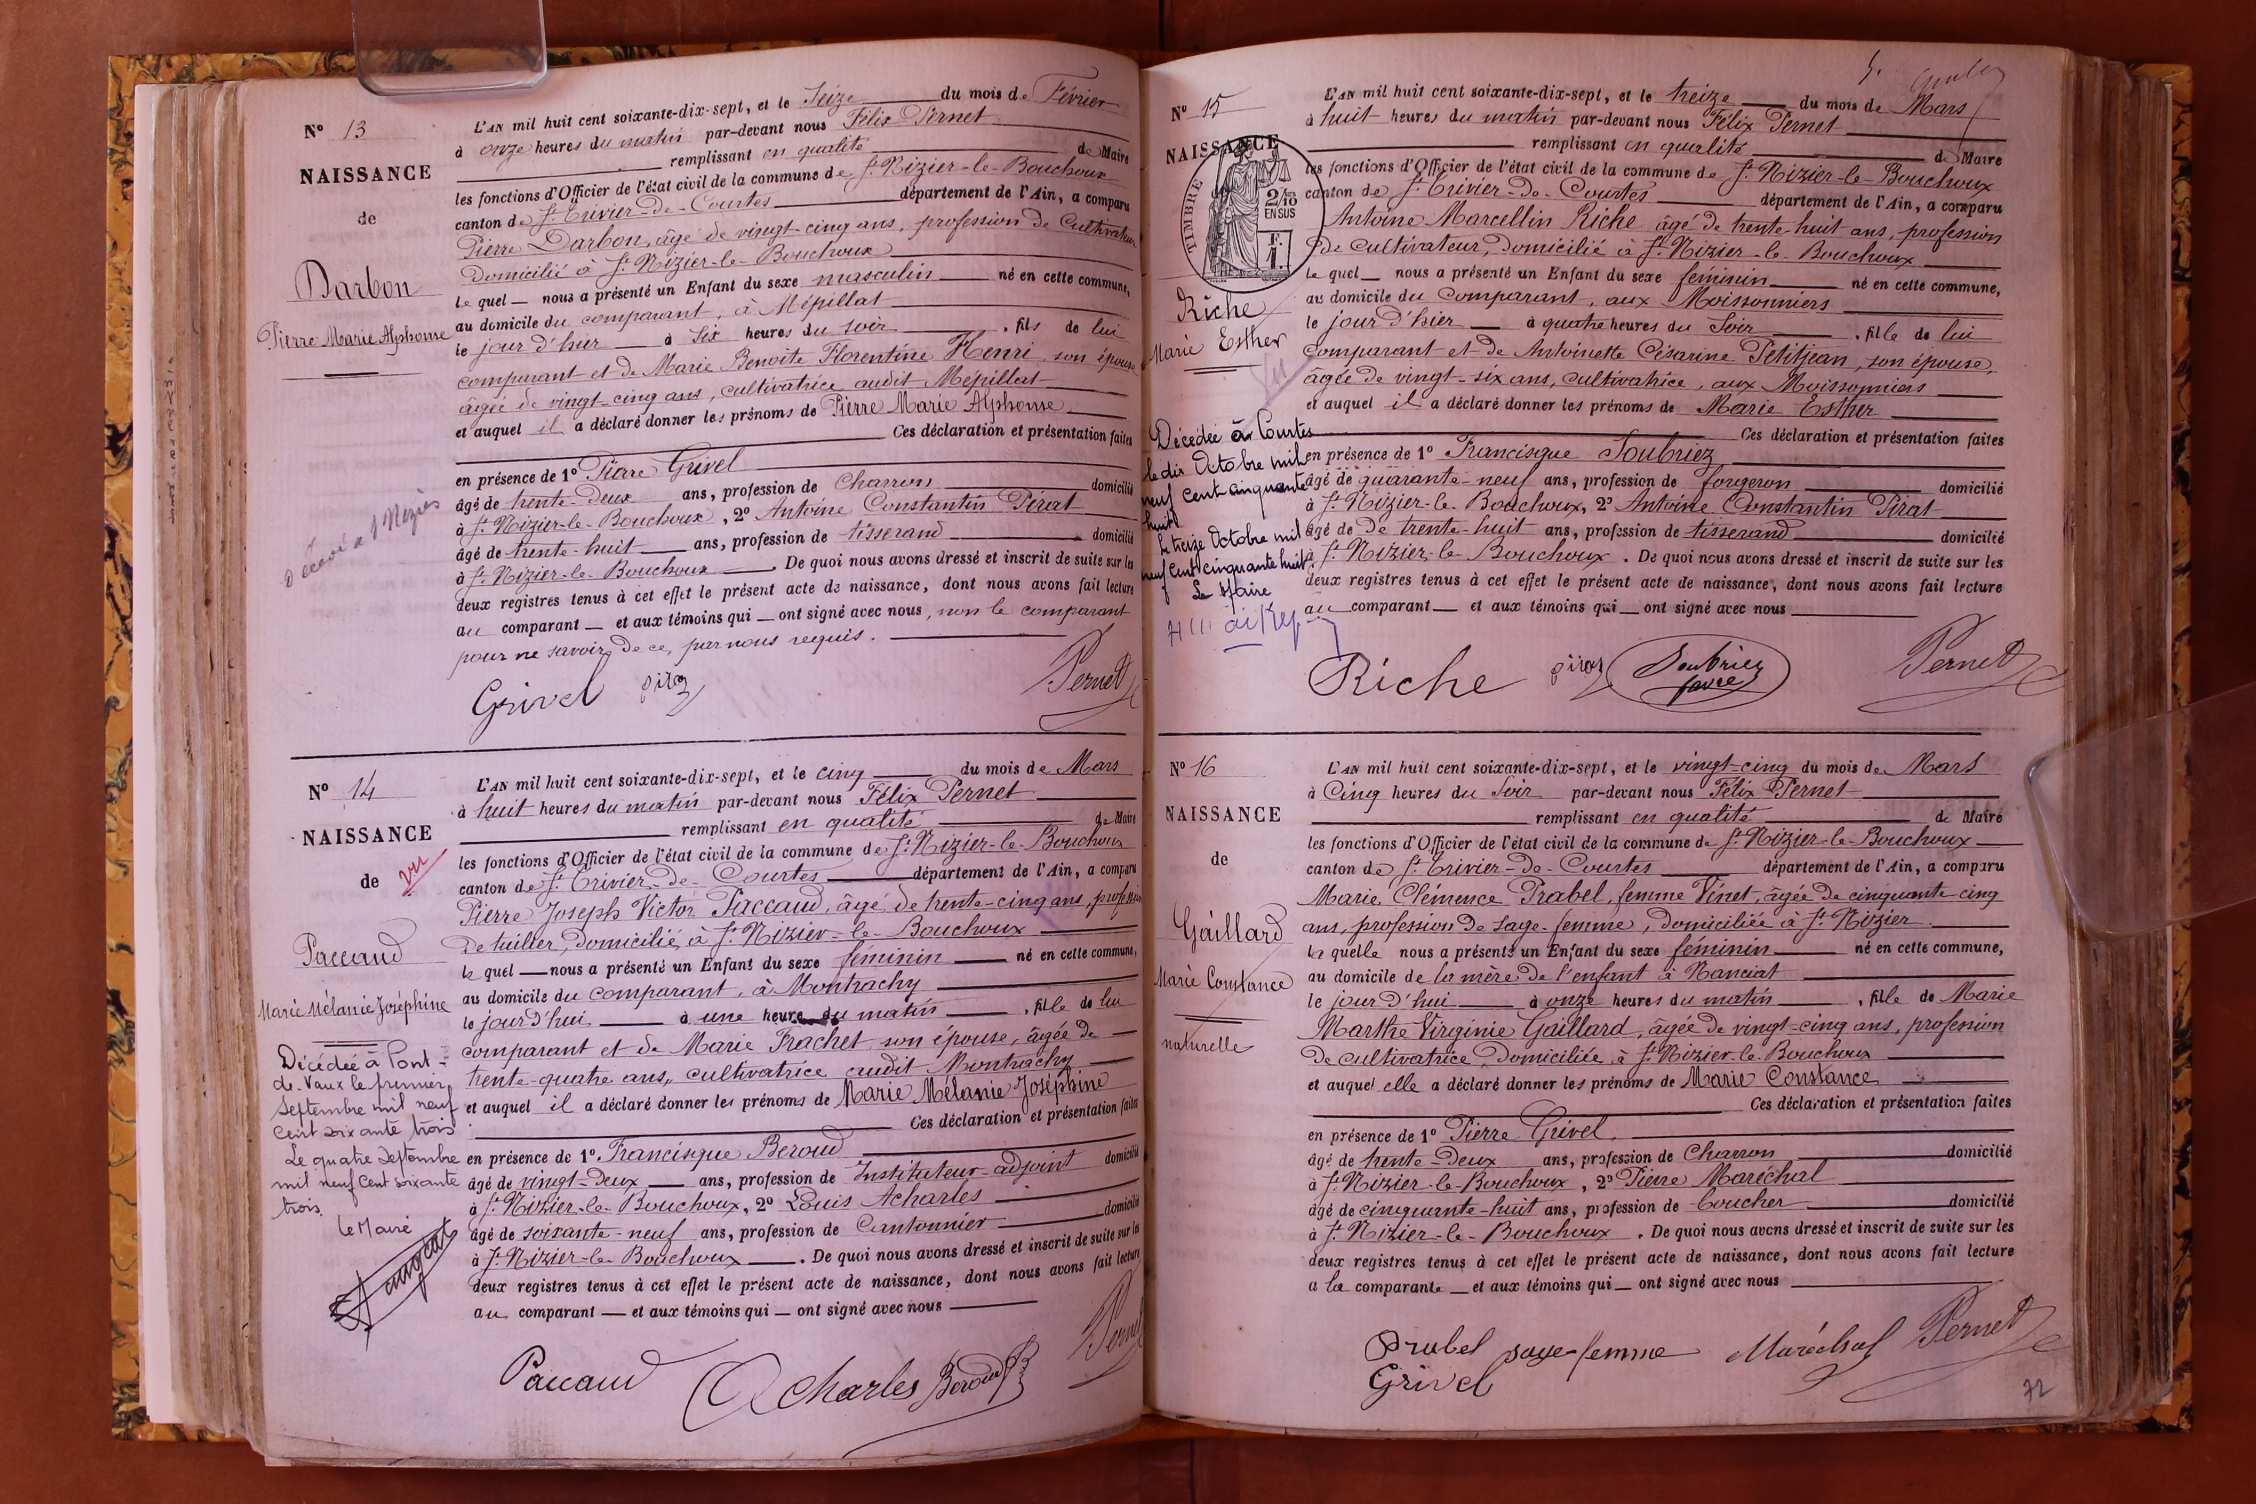 N° 13
NAISSANCE
de
Darbon
Pierre Marie Alphonse
Décédé à St Nizier
L'AN mil huit cent soixante-dix-sept, et le Seize du mois de Février
à onze heures du matin par-devant nous Félix Pernet
remplissant en qualité de Maire
les fonctions d'Officier de l'état civil de la commune de St Nizier-le-Bouchoux
canton de St Trivier-de-Courtes département de l'Ain, a comparu
Pierre Darbon, âgé de vingt-cinq ans, profession de Cultivateur
domicilié à St Nizier-le-Bouchoux
le quel nous a présenté un Enfant du sexe masculin né en cette commune,
au domicile du comparant, à Mépillat
le jour d'hier à Six heures du soir, fils de lui
comparant et de Marie Benoite Florentine Henri, son épouse
âgée de vingt-cinq ans, cultivatrice audit Mépillat
et auquel il a déclaré donner les prénoms de Pierre Marie Alphonse
Ces déclaration et présentation faites
en présence de 1° Pierre Grivel
âgé de trente-deux ans, profession de Charron domicilié
à St Nizier-le-Bouchoux, 2° Antoine Constantin Pirat
âgé de trente-huit ans, profession de tisserand domicilié
à St Nizier-le-Bouchoux. De quoi nous avons dressé et inscrit de suite sur les
deux registres tenus à cet effet le présent acte de naissance, dont nous avons fait lecture
au comparant et aux témoins qui ont signé avec nous, non le comparant
pour ne savoir de ce, par nous requis.
Grivel pirat Pernet
N° 14
NAISSANCE
de
vu
Paccaud
Marie Mélanie Joséphine
Décédée à Pont-
de-Vaux le premier
Septembre mil neuf
cent soixante trois
Le quatre Septembre
mil neuf cent soixante
trois.
Le Maire
L'AN mil huit cent soixante-dix-sept, et le cinq du mois de Mars
à huit heures du matin par-devant nous Félix Pernet
remplissant en qualité de Maire
les fonctions d'Officier de l'état civil de la commune de St Nizier-le-Bouchoux
canton de St Trivier-de-Courtes département de l'Ain, a comparu
Pierre Joseph Victor Paccaud, âgé de trente-cinq ans, profession
de tuilier, domicilié à St Nizier-le-Bouchoux
le quel nous a présenté un Enfant du sexe féminin né en cette commune,
au domicile du comparant, à Montrachy
le jour d'hui à une heure du matin, fille de lui
comparant et de Marie Frachet son épouse, âgée de
trente-quatre ans, cultivatrice audit Montrachy
et auquel il a déclaré donner les prénoms de Marie Mélanie Joséphine
Ces déclaration et présentation faites
en présence de 1° Francisque Beroud
âgé de vingt-deux ans, profession de Instituteur-adjoint domicilié
à St Nizier-le-Bouchoux, 2° Louis Acharles
âgé de soixante-neuf ans, profession de Cantonnier domicilié
à St Nizier-le-Bouchoux. De quoi nous avons dressé et inscrit de suite sur les
deux registres tenus à cet effet le présent acte de naissance, dont nous avons fait lecture
au comparant et aux témoins qui ont signé avec nous
Paccaud Acharles Beroud Pernet
N° 15
NAISSANCE
TIMBRE
2/10
EN SUS
F.
1.
Riche
Marie Esther
Vu
Décédée à Courtes
le dix Octobre mil
neuf cent cinquante
huit
Le treize Octobre mil
neuf cent cinquante huit.
Le Maire
L'AN mil huit cent soixante-dix-sept, et le treize du mois de Mars
à huit heures du matin par-devant nous Félix Pernet
remplissant en qualité de Maire
les fonctions d'Officier de l'état civil de la commune de St Nizier-le-Bouchoux
canton de St Trivier-de-Courtes département de l'Ain, a comparu
Antoine Marcellin Riche âgé de trente-huit ans, profession
de cultivateur, domicilié à St Nizier-le-Bouchoux
le quel nous a présenté un Enfant du sexe féminin né en cette commune,
au domicile du comparant, aux Moissonniers
le jour d'hier à quatre heures du Soir, fille de lui
comparant et de Antoinette Césarine Petitjean, son épouse,
âgée de vingt-six ans, cultivatrice, aux Moissonniers
et auquel il a déclaré donner les prénoms de Marie Esther
Ces déclaration et présentation faites
en présence de 1° Francisque Soubriez
âgé de quarante-neuf ans, profession de forgeron domicilié
à St Nizier-le-Bouchoux, 2° Antoine Constantin Pirat
âgé de de trente-huit ans, profession de tisserand domicilié
à St Nizier-le-Bouchoux. De quoi nous avons dressé et inscrit de suite sur les
deux registres tenus à cet effet le présent acte de naissance, dont nous avons fait lecture
au comparant et aux témoins qui ont signé avec nous
Riche pirat Soubriez favre Pernet
N° 16
NAISSANCE
de
Gaillard
Marie Constance
naturelle
L'AN mil huit cent soixante-dix-sept, et le vingt-cinq du mois de Mars
à Cinq heures du Soir par-devant nous Félix Pernet
remplissant en qualité de Maire
les fonctions d'Officier de l'état civil de la commune de St Nizier-le-Bouchoux
canton de St Trivier-de-Courtes département de l'Ain, a comparu
Marie Clémence Prabel, femme Vinet, âgée de cinquante-cinq
ans, profession de sage-femme, domiciliée à St Nizier
la quelle nous a présenté un Enfant du sexe féminin né en cette commune,
au domicile de la mère de l'enfant à Nanciat
le jour d'hui à onze heures du matin, fille de Marie
Marthe Virginie Gaillard, âgée de vingt-cinq ans, profession
de cultivatrice domiciliée à St Nizier-le-Bouchoux
et auquel elle a déclaré donner les prénoms de Marie Constance
Ces déclaration et présentation faites
en présence de 1° Pierre Grivel
âgé de trente-deux ans, profession de Charron domicilié
à St Nizier-le-Bouchoux, 2° Pierre Maréchal
âgé de cinquante-huit ans, profession de boucher domicilié
à St Nizier-le-Bouchoux. De quoi nous avons dressé et inscrit de suite sur les
deux registres tenus à cet effet le présent acte de naissance, dont nous avons fait lecture
a la comparante et aux témoins qui ont signé avec nous
Prabel sage-femme Maréchal Pernet
Grivel
72